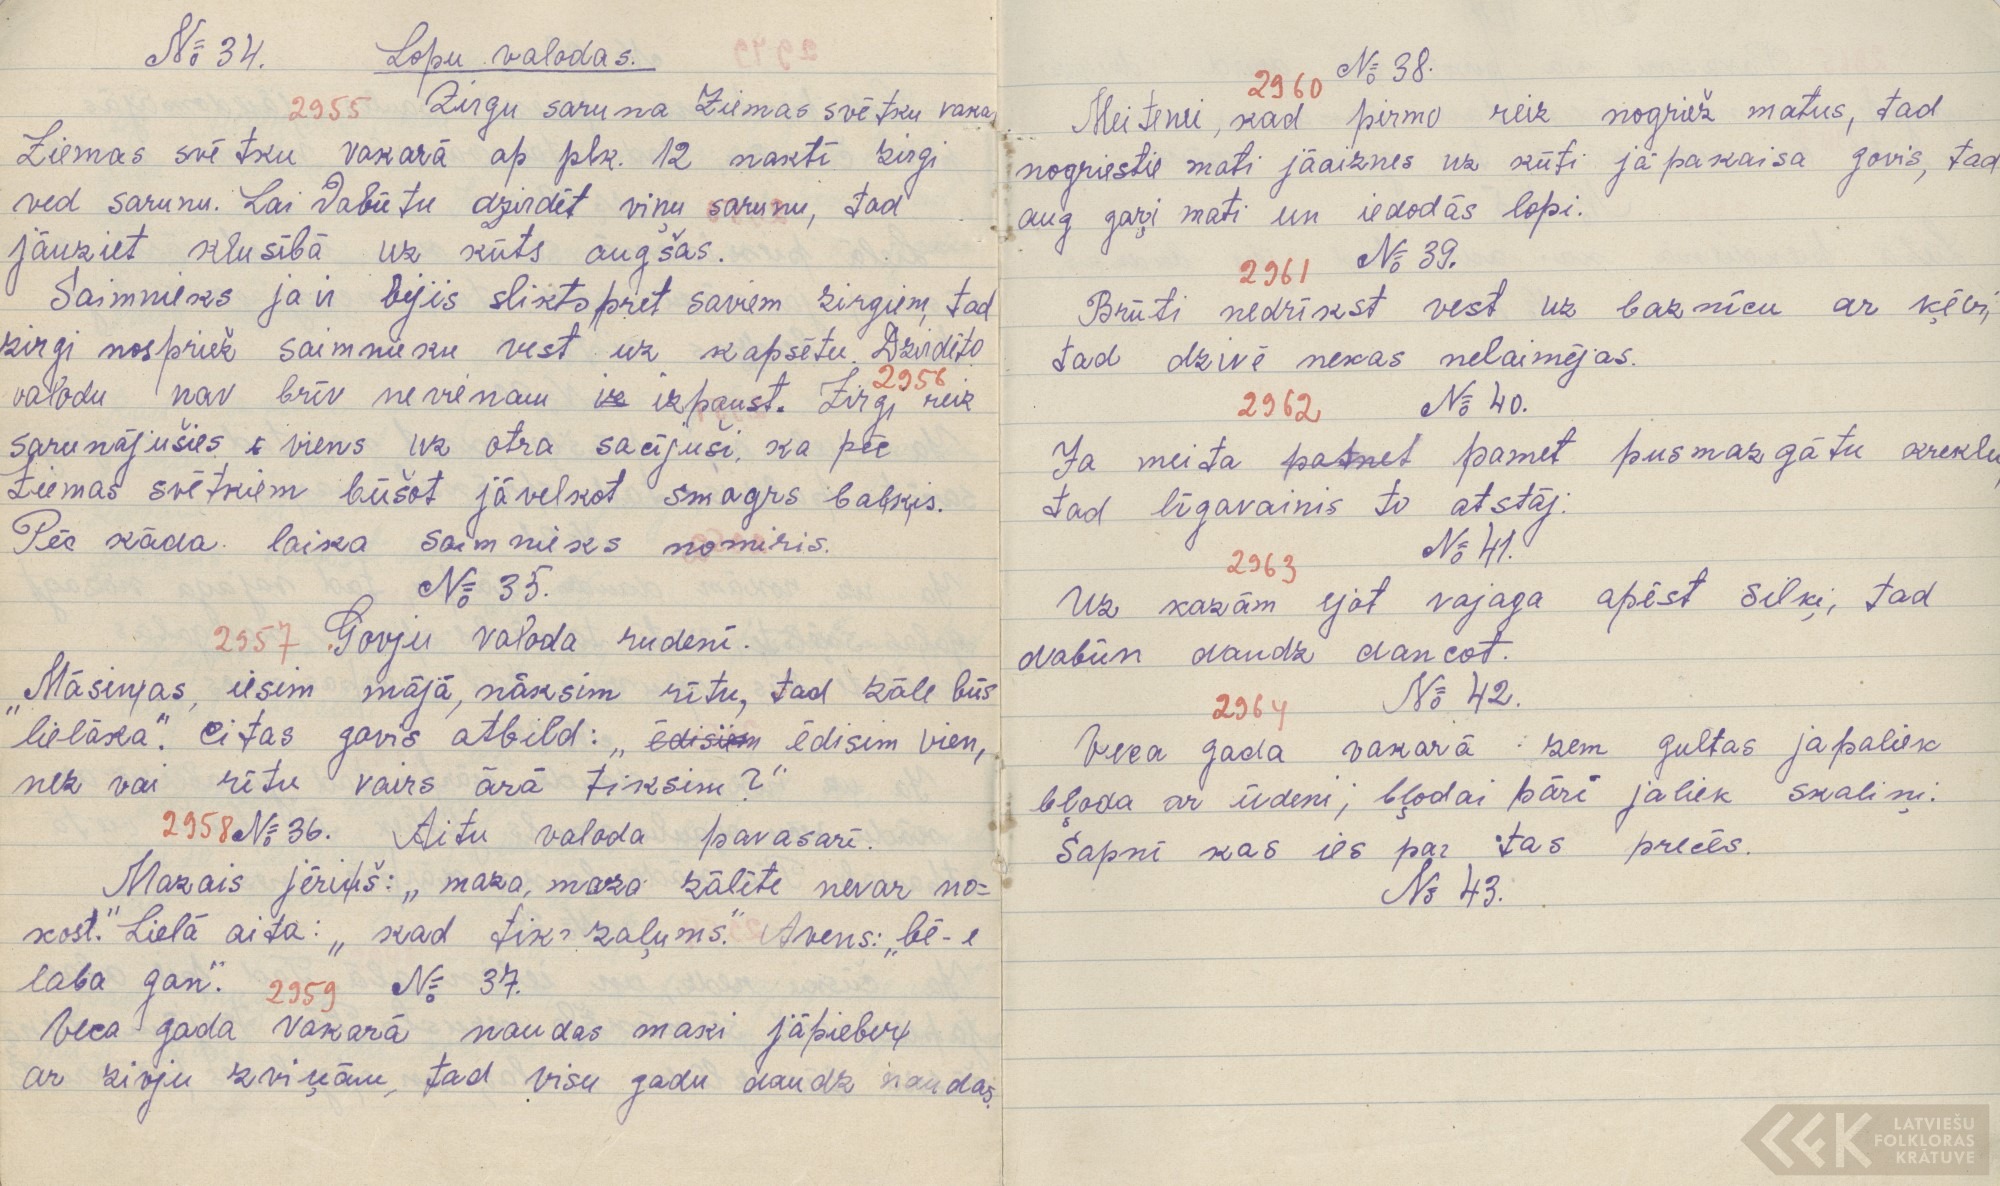 № 34. Lopu valodas.
2955 Zirgu saruna Ziemas svētku vaka
Ziemas svētku vakarā ap plk. 12 naktī zirgi
ved sarunu. Lai dabūtu dzirdēt viņu sarunu, tad
jāuziet klusībā uz kūts augšas.
Saimnieks ja ir bijis slikts pret saviem zirgiem, tad
zirgi nospriež saimnieku vest uz kapsētu. Dzirdēto
valodu nav brīv nevienam iz izpaust. 2956 Zirgi reiz
sarunājušies viens uz otra sacījuši, ka pēc
Ziemas svētkiem būšot jāvelkot smagrs baļķis.
Pēc kāda laika saimnieks nomiris.
№ 35.
2957 Govju valoda rudenī.
„Māsiņas, iesim mājā, nāksim rītu, tad zāle būs
lielāka". Citas govis atbild: „ ēdisim ēdisim vien,
nez vai rītu vairs ārā tiksim?"
2958 № 36. Aitu valoda pavasarī.
Mazais jēriņš: „ maza, maza zālīte nevar no=
kost." Lielā aita: „ kad tik zaļums." Avens: „bē-e
laba gan". 2959 № 37.
Veca gada vakarā naudas maki jāpieber
ar zivju zviņām, tad visu gadu daudz naudas.
№ 38.
2960
Meitenei, kad pirmo reiz nogriež matus, tad
nogriestie mati jāaiznes uz kūti jāpakaisa govis, tad
aug gaŗi mati un iedodās lopi.
№ 39.
2961
Brūti nedrīkst vest uz baznīcu ar ķēvi,
tad dzīvē nekas nelaimējas.
2962 № 40.
Ja meita pamet pamet pusmazgātu kreklu,
tad līgavainis to atstāj.
№ 41.
2963
Uz kazām ejot vajaga apēst siļķi, tad
dabūn daudz dancot.
2964 № 42.
Veca gada vakarā zem gultas japaliek
bļoda ar ūdeni, bļodai pāri jaliek skaliņi.
Sapnī kas ies par tas precēs.
№ 43.
LATVIEŠU
FOLKLORAS
KRĀTUVE